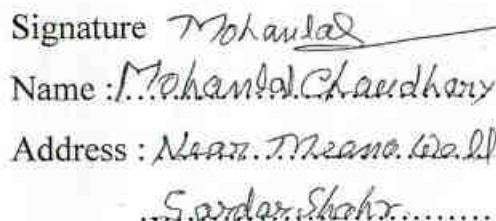 Signature Mohanlal
Name : Mohanlal Chaudhary
Address : Near
Sardar Shahr